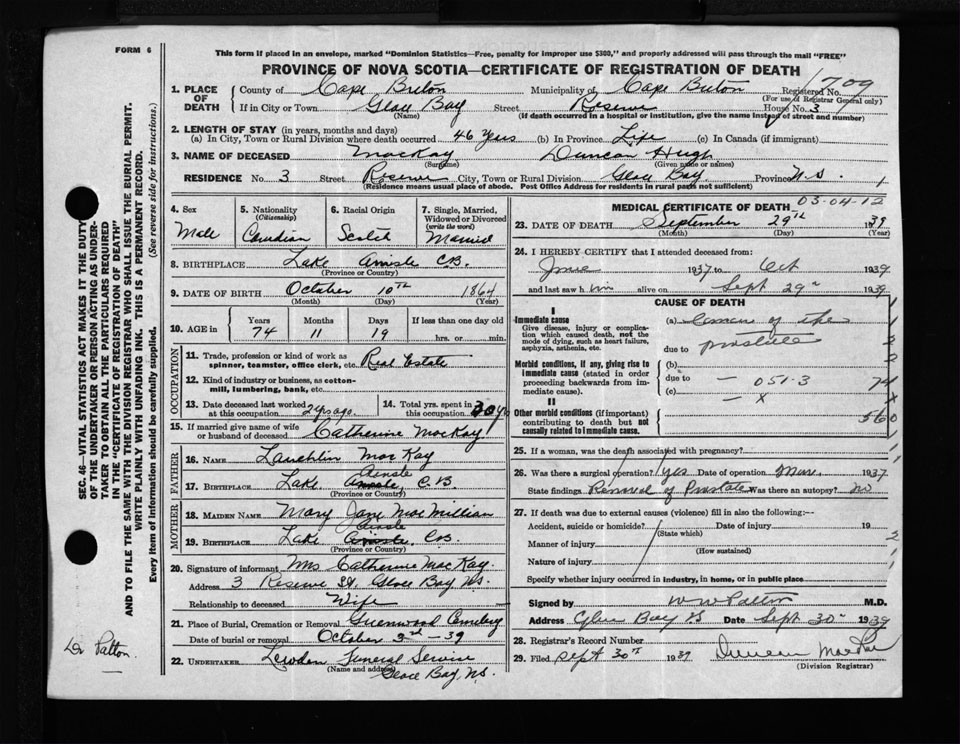 FORM 6
This form if placed in an envelope, marked "Dominion Statistics—Free, penalty for improper use $300," and properly addressed will pass through the mail "FREE"
PROVINCE OF NOVA SCOTIA—CERTIFICATE OF REGISTRATION OF DEATH
1709
1. PLACE OF DEATH
County of Cape Breton Municipality of Cape Breton Registered No.
(For use of Registrar General only)
If in City or Town Glace Bay Street Reserve House No. 3
(Name) (If death occurred in a hospital or institution, give the name instead of street and number)
2. LENGTH OF STAY (in years, months and days)
(a) In City, Town or Rural Division where death occurred 46 years (b) In Province Life (c) In Canada (if immigrant)
3. NAME OF DECEASED MacKay Duncan Hugh
(Surname) (Given name or names)
RESIDENCE No. 3 Street Reserve City, Town or Rural Division Glace Bay Province N.S.
(Residence means usual place of abode. Post Office Address for residents in rural parts not sufficient)
4. Sex Male
5. Nationality (Citizenship) Canadian
6. Racial Origin Scotch
7. Single, Married, Widowed or Divorced (write the word) Married
8. BIRTHPLACE Lake Ainslie C.B.
(Province or Country)
9. DATE OF BIRTH October 10th 1864
(Month) (Day) (Year)
10. AGE in Years Months Days If less than one day old
74 11 19 hrs. or min.
OCCUPATION
11. Trade, profession or kind of work as spinner, teamster, office clerk, etc. Real Estate
12. Kind of industry or business, as cotton-mill, lumbering, bank, etc.
13. Date deceased last worked at this occupation 2 yrs ago
14. Total yrs. spent in this occupation 30 yrs
15. If married give name of wife or husband of deceased Catherine MacKay
FATHER
16. NAME Lauchlin MacKay
17. BIRTHPLACE Lake Ainslie, C.B
(Province or Country)
MOTHER
18. MAIDEN NAME Mary Jane MacMillian
19. BIRTHPLACE Lake Ainslie, C.B.
(Province or Country)
20. Signature of informant Mrs Catherine MacKay.
Address 3 Reserve St, Glace Bay N.S.
Relationship to deceased Wife
21. Place of Burial, Cremation or Removal Greenwood Cemetery
Date of burial or removal October 2nd - 39
22. UNDERTAKER Funeral Service
(Name and address) Glace Bay, N.S.
MEDICAL CERTIFICATE OF DEATH
03-04-12
23. DATE OF DEATH September 29th 1939
(Month) (Day) (Year)
24. I HEREBY CERTIFY that I attended deceased from:
June 1937 to Oct 1939
and last saw him alive on Sept 29th 1939
CAUSE OF DEATH
I
Immediate cause
Give disease, injury or complication which caused death, not the mode of dying, such as heart failure, asphyxia, asthenia, etc.
(a) Cancer of the
due to prostate
Morbid conditions, if any, giving rise to immediate cause (stated in order proceeding backwards from immediate cause).
(b)
due to — 051-3 74
(c) — x
II
Other morbid conditions (if important) contributing to death but not causally related to immediate cause.
560
25. If a woman, was the death associated with pregnancy?
26. Was there a surgical operation? Yes Date of operation Mar. 1937
State findings Removal of Prostate Was there an autopsy? No
27. If death was due to external causes (violence) fill in also the following:—
Accident, suicide or homicide? Date of injury 19
(State which)
Manner of injury
(How sustained)
Nature of injury
Specify whether injury occurred in industry, in home, or in public place
Signed by W W Patton M.D.
Address Glace Bay NS Date Sept 30th 1939
28. Registrar's Record Number
29. Filed Sept 30th 1939 Duncan
(Division Registrar)
Dr Patton.
SEC. 46—VITAL STATISTICS ACT MAKES IT THE DUTY OF THE UNDERTAKER OR PERSON ACTING AS UNDERTAKER TO OBTAIN ALL THE PARTICULARS REQUIRED IN THE "CERTIFICATE OF REGISTRATION OF DEATH"
AND TO FILE THE SAME WITH THE DIVISION REGISTRAR WHO SHALL ISSUE THE BURIAL PERMIT.
WRITE PLAINLY WITH UNFADING INK. THIS IS A PERMANENT RECORD.
Every item of information should be carefully supplied. (See reverse side for instructions.)